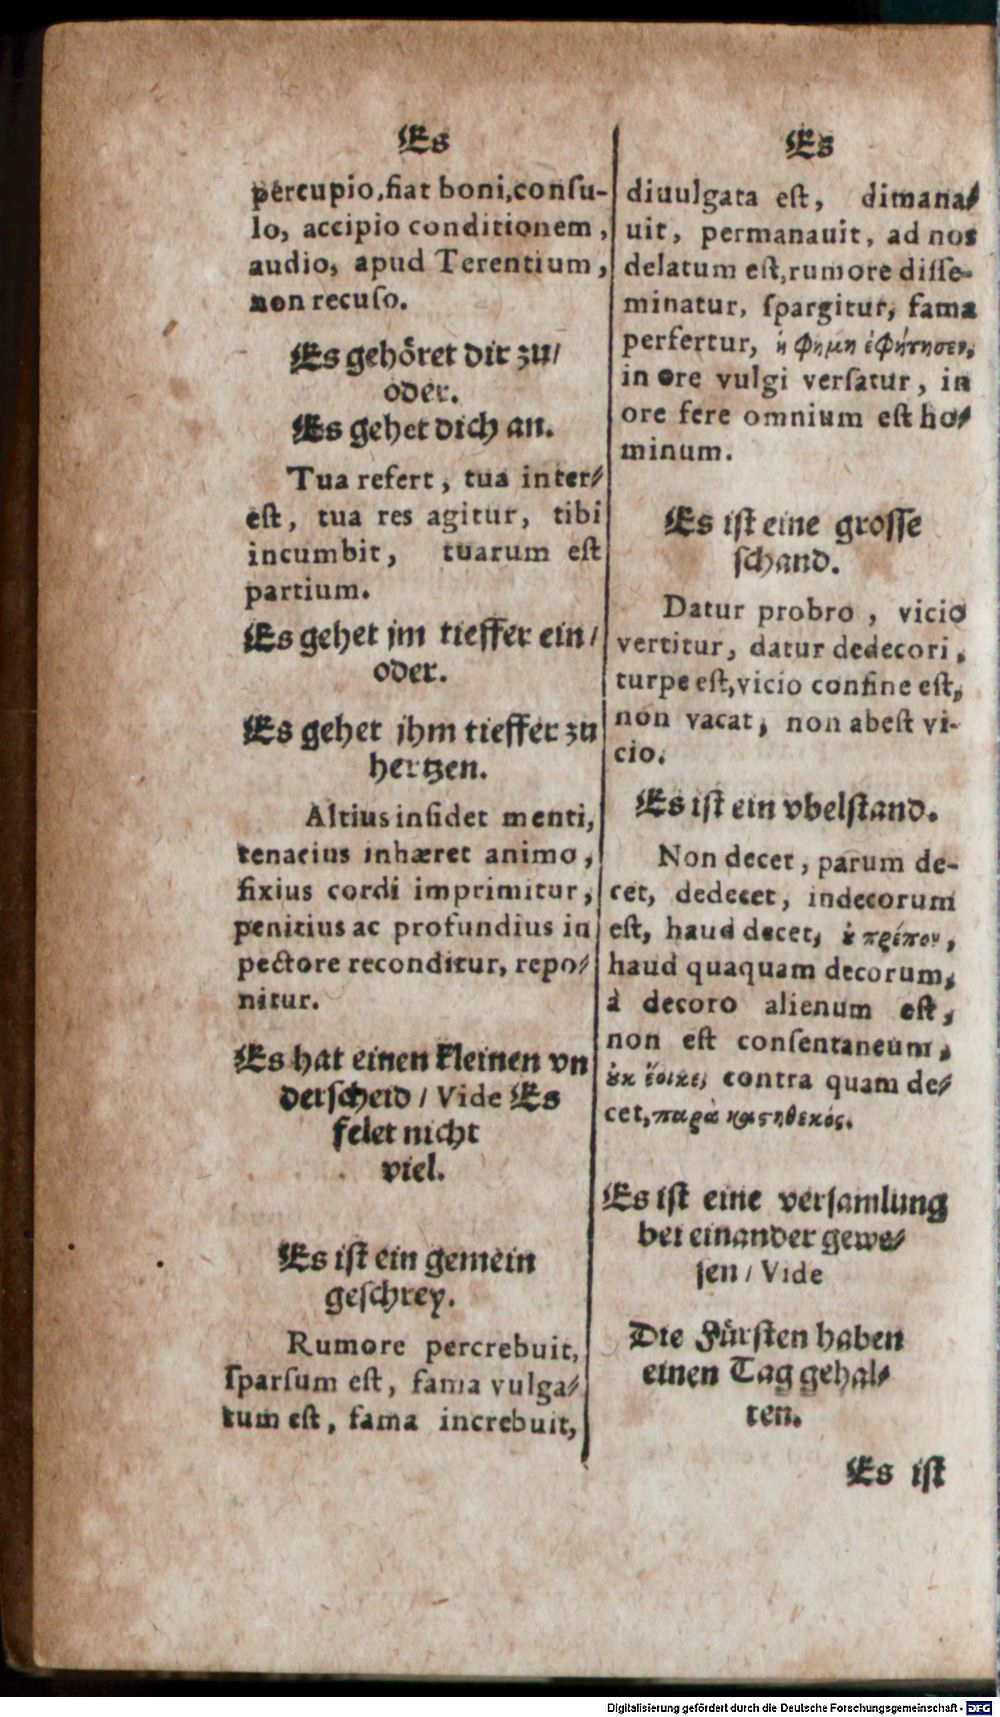 Es
percupio, fiat boni, conſu-
lo, accipio conditionem,
audio, apud Terentium,
non recuſo.
Es gehöret dir zu/
oder.
Es gehet dich an.
Tua refert, tua inter-
eſt, tua res agitur, tibi
incumbit, tuarum eſt
partium.
Es gehet jm tieffer ein/
oder.
Es gehet jhm tieffer zu
hertzen.
Altius inſidet menti,
tenacius inhæret animo,
fixius cordi imprimitur,
penitius ac profundius in
pectore reconditur, repo-
nitur.
Es hat einen kleinen vn
derſcheid / Vide Es
felet nicht
viel.
Es iſt ein gemein
geſchrey.
Rumore percrebuit,
ſparſum eſt, fama vulga-
tum eſt, fama increbuit,
Es
diuulgata eſt, dimana-
uit, permanauit, ad nos
delatum eſt, rumore diſſe-
minatur, ſpargitur, fama
perfertur, ἡ φημη ἐφήτησεν,
in ore vulgi verſatur, in
ore fere omnium eſt ho-
minum.
Es iſt eine groſſe
ſchand.
Datur probro, vicio
vertitur, datur dedecori,
turpe eſt, vicio confine eſt,
non vacat, non abeſt vi-
cio.
Es iſt ein vbelſtand.
Non decet, parum de-
cet, dedecet, indecorum
eſt, haud decet, ȣ̓ πρέπον,
haud quaquam decorum,
à decoro alienum eſt,
non eſt conſentaneum,
ȣ̓κ ἔοικε, contra quam de-
cet, παρὰ καθηκός.
Es iſt eine verſamlung
bei einander gewe-
ſen / Vide
Die Fürſten haben
einen Tag gehal-
ten.
Es iſt
Digitalisierung gefördert durch die Deutsche Forschungsgemeinschaft - DFG